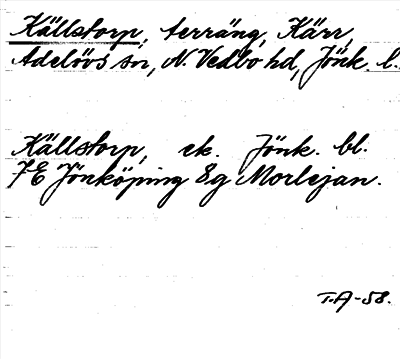 Källstorp, terräng, Kärr,
Adelövs sn, N. Vedbo hd, Jönk. l.
Källstorp, ek. Jönk. bl.
7E Jönköping 8g Morlejan.
T.A-58.